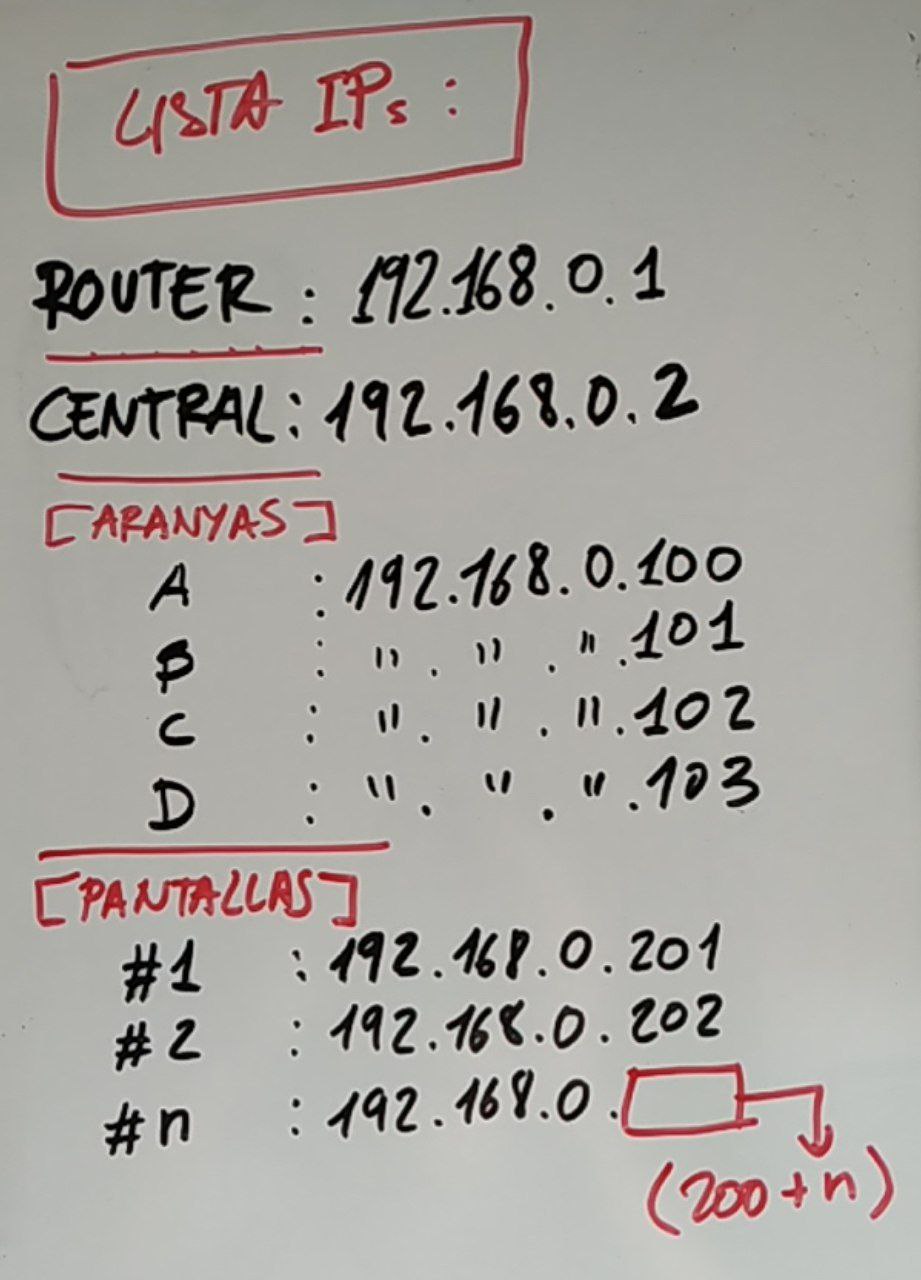 LISTA IPs :
ROUTER : 192.168.0.1
CENTRAL: 192.168.0.2
[ARANYAS]
A : 192.168.0.100
B : " . " . " .101
C : " . " . " .102
D : " . " . " .103
[PANTALLAS]
#1 : 192.168.0.201
#2 : 192.168.0.202
#n : 192.168.0.
(200+n)